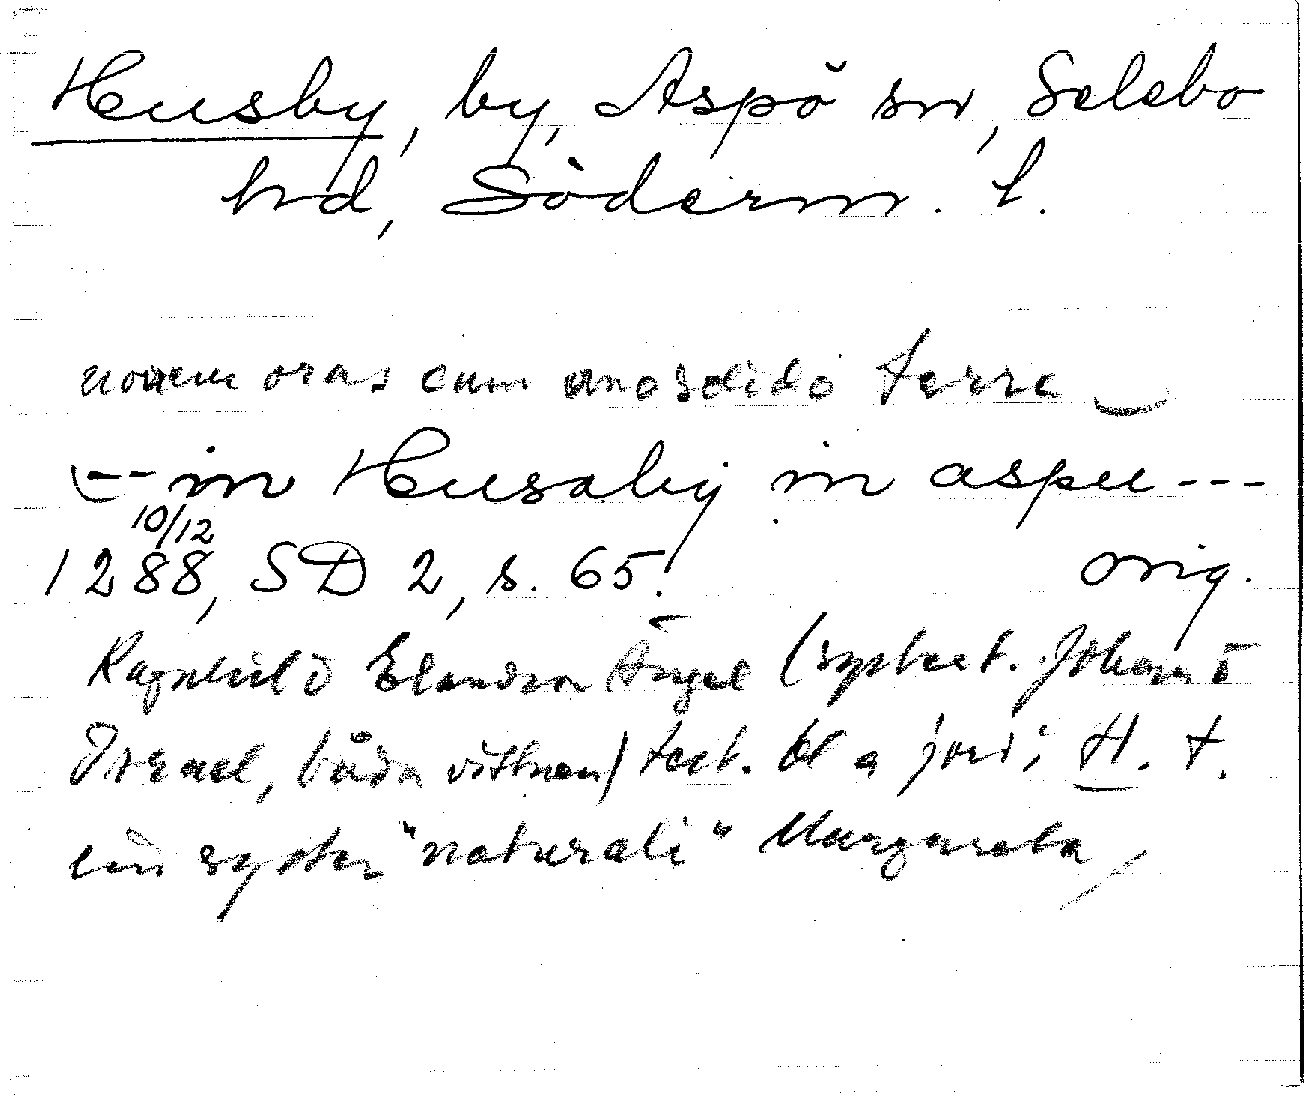 Husby, by, Aspö sn, Selebo
hd, Söderm. l.
novem oras cum uno solido terre
-- in Husaby in aspu ---
10/12
1288, SD 2, s. 65. orig.
Ragnhild Elandsn Ängel (systret. Johan o
Israel, båda vittnen) test. bl a jord i H. t.
sin syster "naturali" Margareta